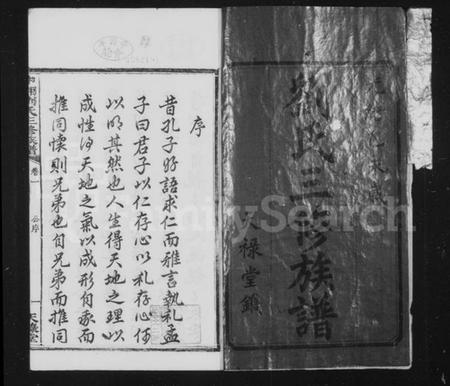 劉氏三修族譜
天祿堂鐫
序
昔孔子好語求仁而雅言執礼孟
子曰君子以仁存心以礼存心何
以明其然也人生得天地之理以
成性得天地之氣以成形自我而
推同懷則兄弟也自兄弟而推同
劉氏三修族譜
卷一
公序
FamilySearch